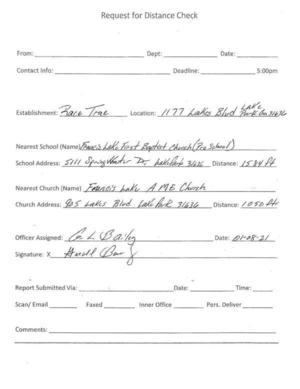 Request for Distance Check
From: Dept: Date:
Contact Info: Deadline: 5:00pm
Establishment: Race Trac Location: 1177 Lakes Blvd Lake Park Ga 31636
Nearest School (Name) Francis Lake First Baptist Church (Pre School)
School Address: 5111 Spring Water Dr, Lake Park 31636 Distance: 1584 ft
Nearest Church (Name) Francis Lake AME Church
Church Address: 905 Lakes Blvd Lake Park 31636 Distance: 1050 ft
Officer Assigned: L Bailey Date: 01-08-21
Signature: X
Report Submitted Via: Date: Time:
Scan/ Email Faxed Inner Office Pers. Deliver
Comments: